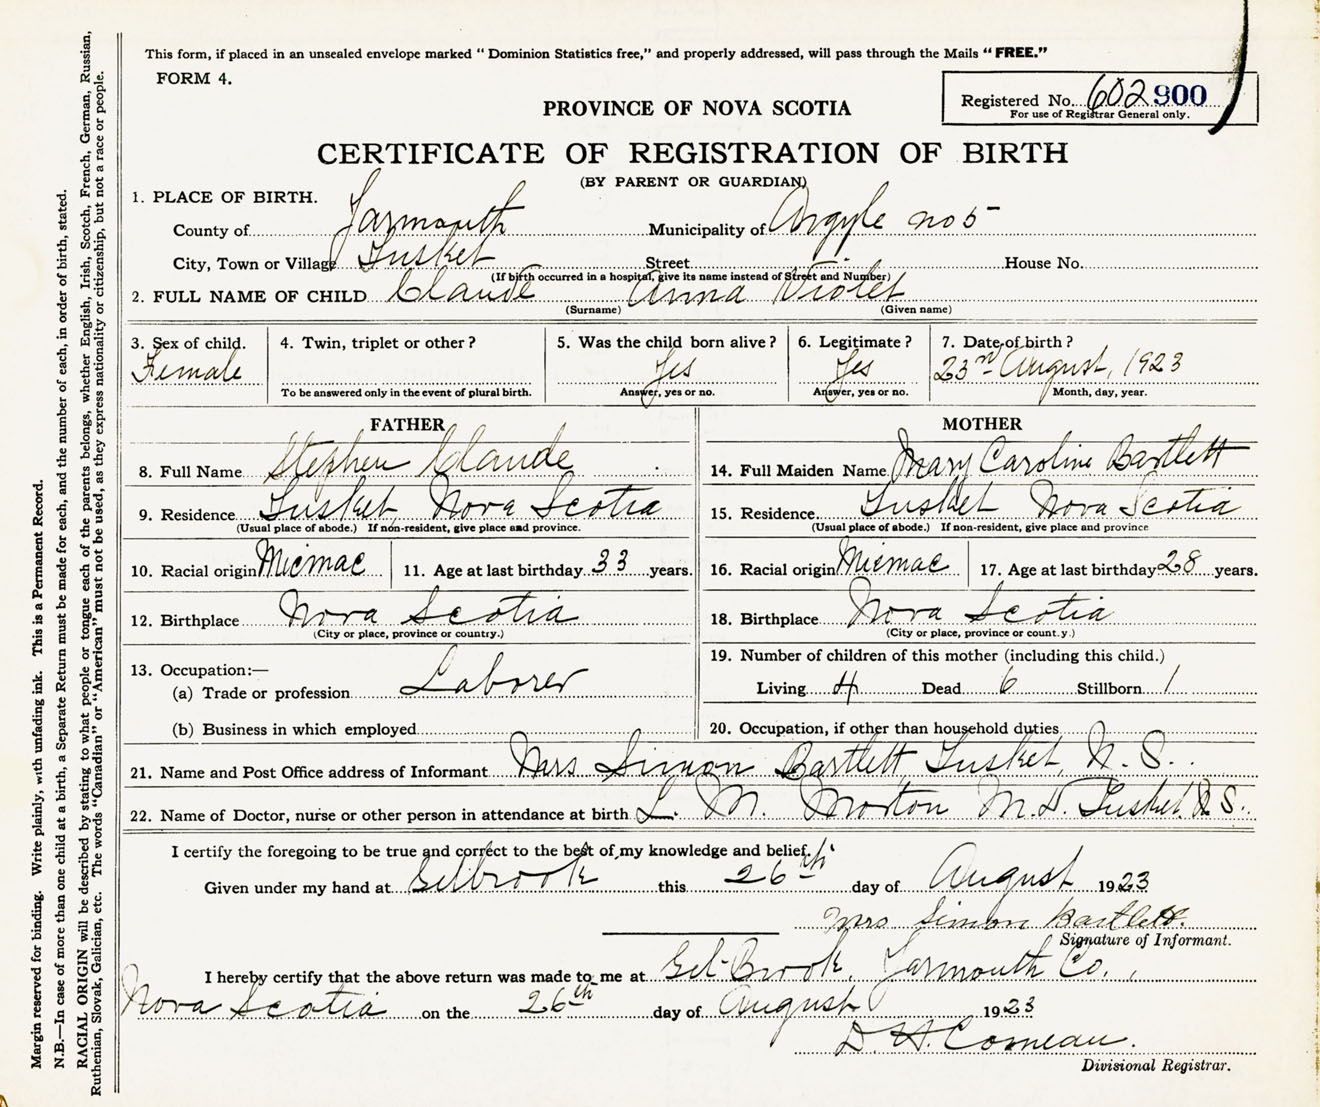 This form, if placed in an unsealed envelope marked " Dominion Statistics free," and properly addressed, will pass through the Mails " FREE."
FORM 4.
Registered No. 602900
For use of Registrar General only.
PROVINCE OF NOVA SCOTIA
CERTIFICATE OF REGISTRATION OF BIRTH
(BY PARENT OR GUARDIAN)
1. PLACE OF BIRTH.
County of Yarmouth Municipality of Argyle no 5
City, Town or Village Tusket Street House No.
(If birth occurred in a hospital, give its name instead of Street and Number)
2. FULL NAME OF CHILD Claude Anna Violet
(Surname) (Given name)
3. Sex of child. 4. Twin, triplet or other? 5. Was the child born alive? 6. Legitimate? 7. Date of birth?
Female Yes Yes 23rd August, 1923
To be answered only in the event of plural birth. Answer, yes or no. Answer, yes or no. Month, day, year.
FATHER MOTHER
8. Full Name Stephen Claude 14. Full Maiden Name Mary Caroline Bartlett
9. Residence Tusket, Nova Scotia 15. Residence Tusket Nova Scotia
(Usual place of abode.) If non-resident, give place and province. (Usual place of abode.) If non-resident, give place and province
10. Racial origin Micmac 11. Age at last birthday 33 years. 16. Racial origin Micmac 17. Age at last birthday 28 years.
12. Birthplace Nova Scotia 18. Birthplace Nova Scotia
(City or place, province or country.) (City or place, province or count.y.)
13. Occupation:— 19. Number of children of this mother (including this child.)
(a) Trade or profession Laborer Living 4 Dead 6 Stillborn 1
(b) Business in which employed 20. Occupation, if other than household duties
21. Name and Post Office address of Informant Mrs Simon Bartlett Tusket, N. S.
22. Name of Doctor, nurse or other person in attendance at birth L. M. Morton M.D. Tusket, N S.
I certify the foregoing to be true and correct to the best of my knowledge and belief.
Given under my hand at this 26th day of August 1923
Mrs Simon Bartlett.
Signature of Informant.
I hereby certify that the above return was made to me at Gil-Brook, Yarmouth Co.,
Nova Scotia on the 26th day of August 1923
D. H. Comeau.
Divisional Registrar.
Margin reserved for binding. Write plainly, with unfading ink. This is a Permanent Record.
N.B.—In case of more than one child at a birth, a Separate Return must be made for each, and the number of each, in order of birth, stated.
RACIAL ORIGIN will be described by stating to what people or tongue each of the parents belongs, whether English, Irish, Scotch, French, German, Russian,
Ruthenian, Slovak, Galician, etc. The words "Canadian" or "American" must not be used, as they express nationality or citizenship, but not a race or people.